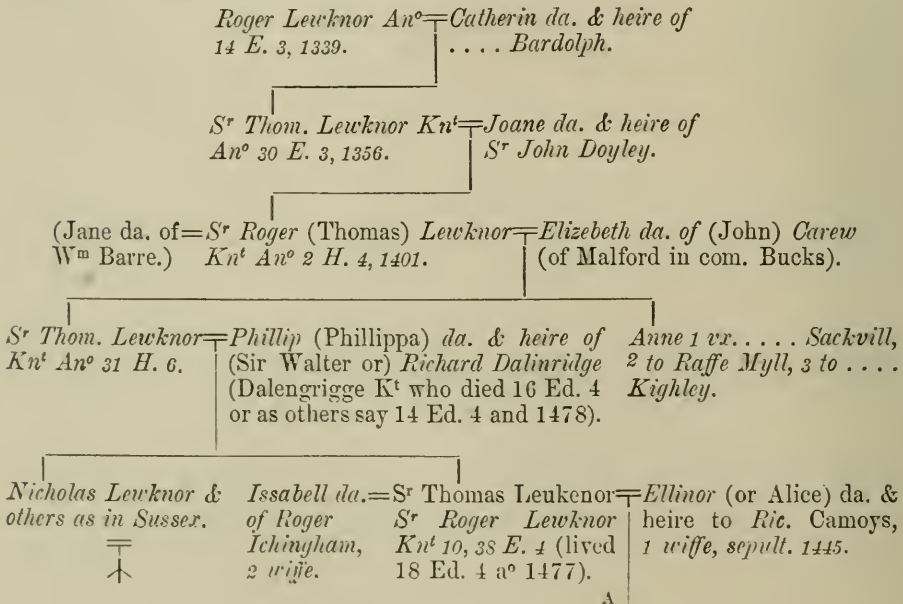 Roger Lewknor Anº Catherin da. & heire of
14 E. 3, 1339. . . . . Bardolph.
Sʳ Thom. Lewknor Knᵗ Joane da. & heire of
Anº 30 E. 3, 1356. Sʳ John Doyley.
(Jane da. of=Sʳ Roger (Thomas) Lewknor Elizebeth da. of (John) Carew
Wᵐ Barre.) Knᵗ Anº 2 H. 4, 1401. (of Malford in com. Bucks).
Sʳ Thom. Lewknor
Knᵗ Anº 31 H. 6.
Phillip (Phillippa) da. & heire of
(Sir Walter or) Richard Dalinridge
(Dalengrigge Kᵗ who died 16 Ed. 4
or as others say 14 Ed. 4 and 1478).
Anne 1 vx. . . . . Sackvill,
2 to Raffe Myll, 3 to . . . .
Kighley.
Nicholas Lewknor &
others as in Sussex.
Issabell da.=
of Roger
Ichingham,
2 wiffe.
Sʳ Thomas Leukenor
Sʳ Roger Lewknor
Knᵗ 10, 38 E. 4 (lived
18 Ed. 4 aº 1477).
Ellinor (or Alice) da. &
heire to Ric. Camoys,
1 wiffe, sepult. 1445.
A